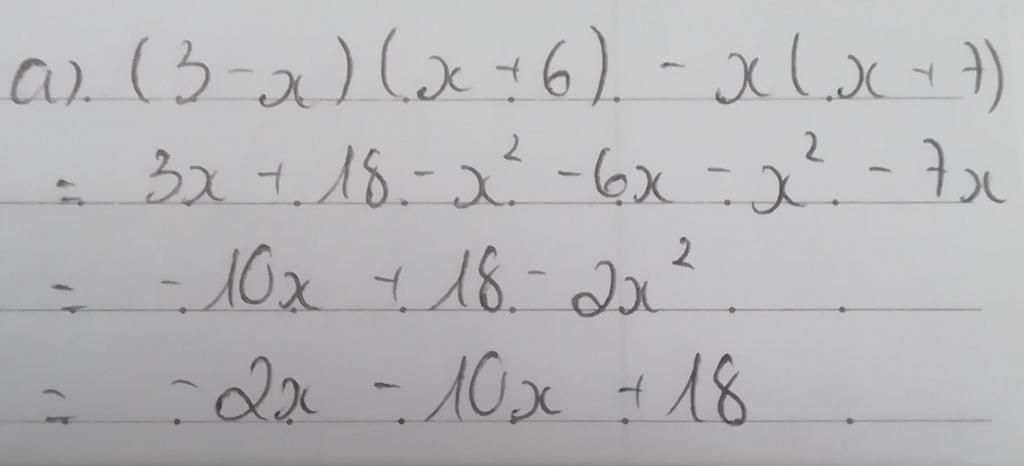 a). (3-x)(x+6) - x(x+7)
= 3x + 18 - x² - 6x - x² - 7x
= -10x + 18 - 2x²
= -2x - 10x + 18